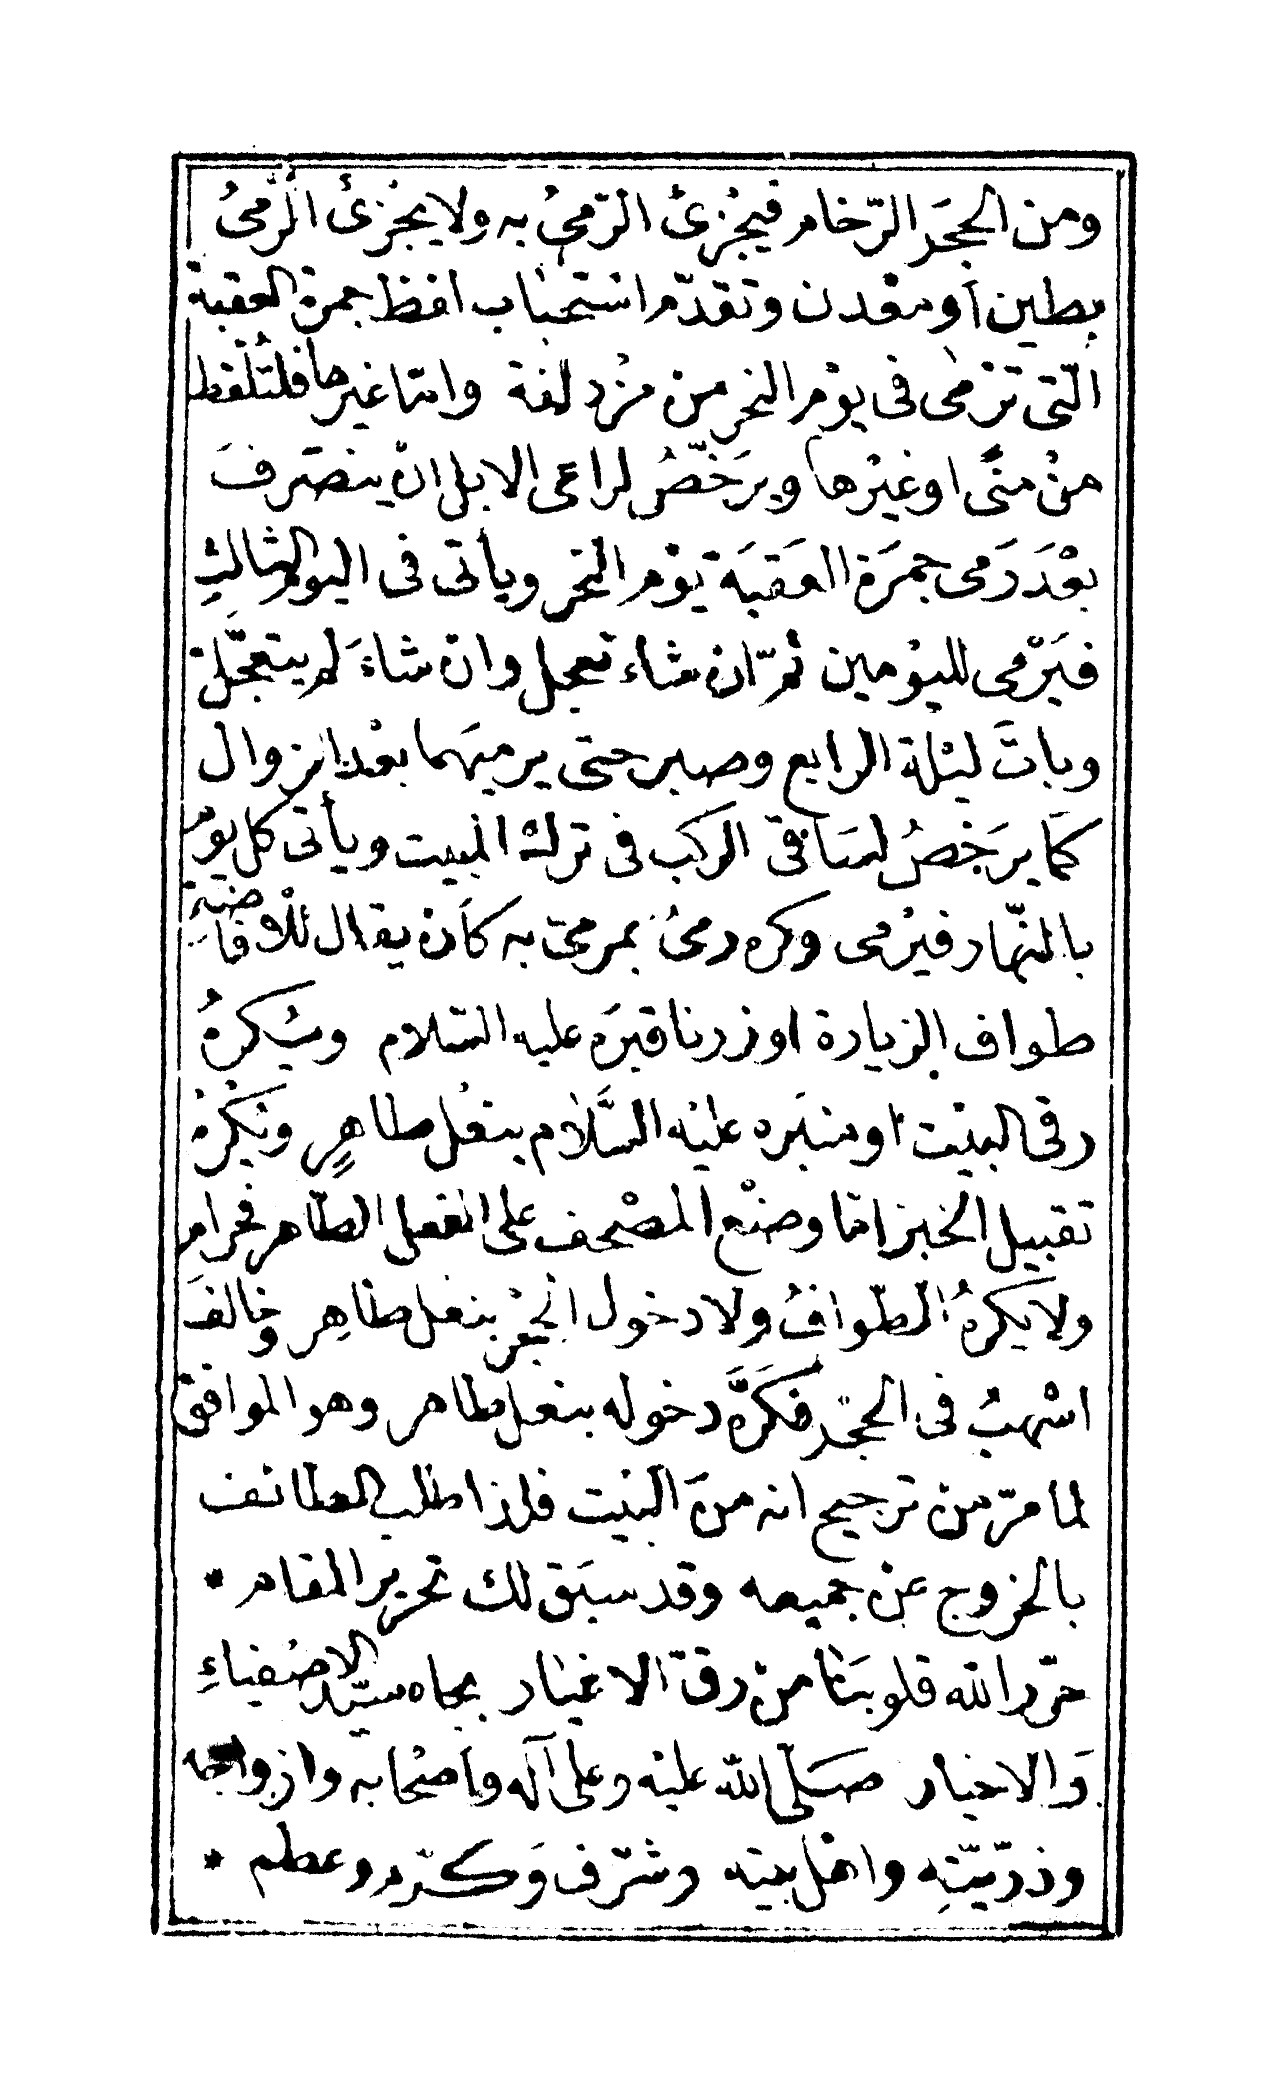 ومن الحجَر الرّخام فيُجزئُ الرّميُ به ولا يُجزئُ الرّميُ
بطين أو معْدن وتقدّم استحباب لفظ جمرة العقبة
الّتى ترْمى فى يوْم النحر من مزْدلفة وامّا غيرها فلتُلْقط
منْ منًى او غيْرها ويرَخّصُ لراعى الابل انْ ينْصَرفَ
بعْدَ رَمى جمرَة العَقبَة يوْم النّحر ويأتى فى اليوم الثالثِ
فيَرْمى لليوْمين ثمّ انْ شاء تعجل وانْ شاءَ لم يتعجّلْ
وباتَ ليْلة الرابع وصبر حتى يرميَهما بعْد الزوال
كمَا يرَخصُ لسَاقىّ الركب فى ترك المبيت ويأتى كل يوْم
بالنّهار فيرْمى وكره رمىُ بمرمىّ به كأن يقال للافاضَةِ
طواف الزيارة او زرنا قبرَه عليه السّلام ويُكرهُ
رقى البيْت او منبَره عليْه السَّلام بنعْل طاهرٍ ويُكْرهُ
تقبيل الخبز امّا وضْع المصْحف على النعل الطّاهر فحرام
ولا يكرهُ الطّوافُ ولا دخول الحجْر بنعل طاهِر وخالفَ
اشْهبُ فى الحجْر فكَرَّه دخوله بنعل طاهر وهو الموافق
لما مرّ من ترجيح انه منَ البيْت فلذا طلب الطائف
بالخروج عنْ جميعه وقد سبَق لك تحرير المقام *
حرّر الله قلوبنَا منْ رقّ الاغيار بجاه سيّد الاصْفياءِ
وَالاخيار صَلّى الله عليْه وعلى آله وأصْحابه وازواجه
وذرّيّتِه واهْل بيته وشرّف وَكرّم وعظم *